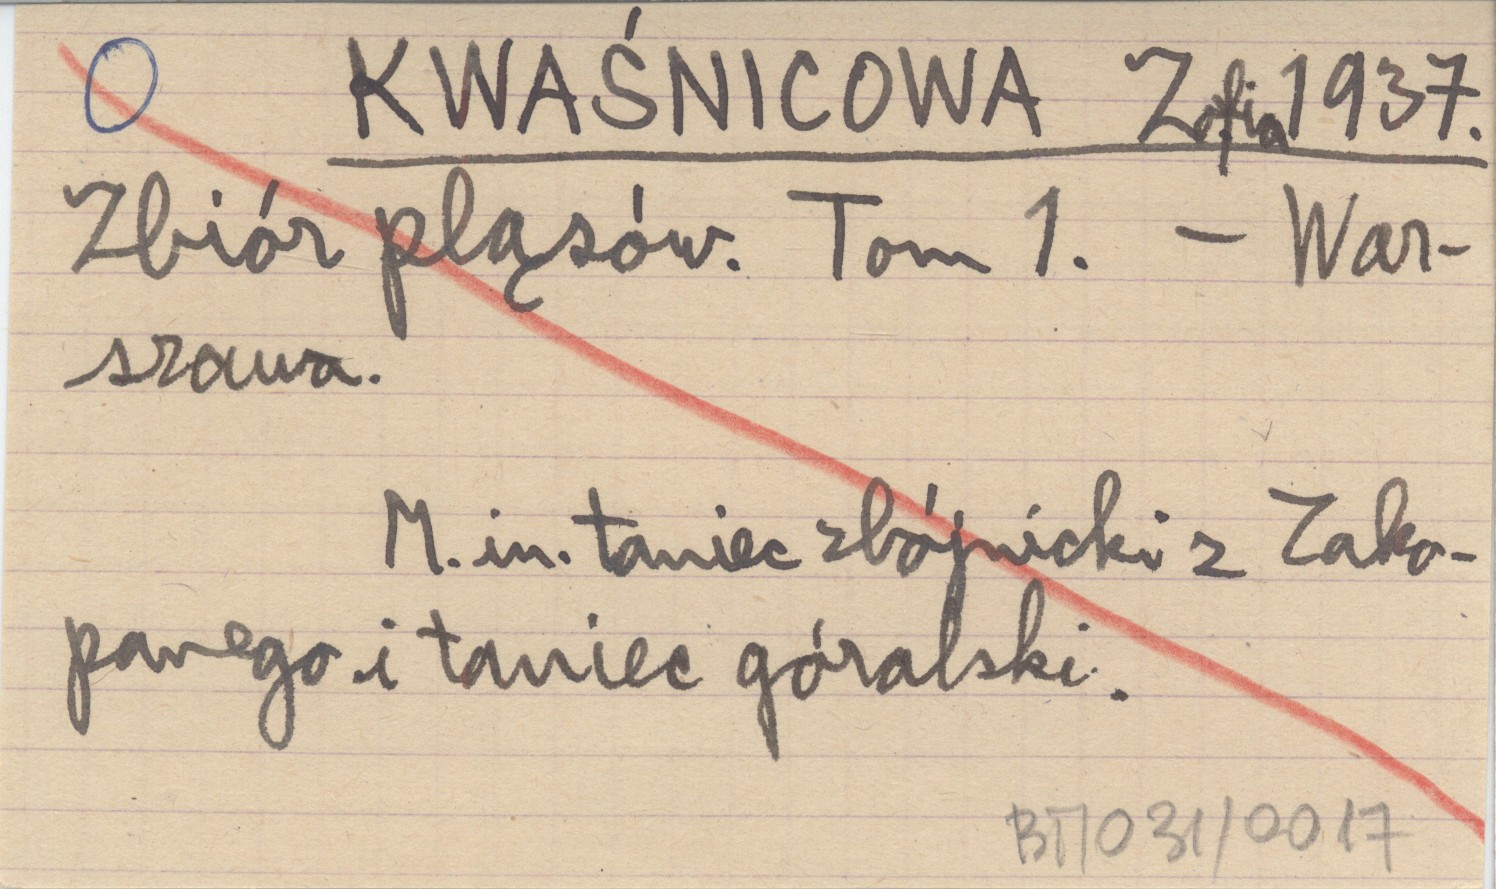 O KWAŚNICOWA Zofia 1937.
Zbiór pląsów. Tom 1. – War-
szawa.
M. in. taniec zbójnicki z Zako-
panego i taniec góralski.
031/0017